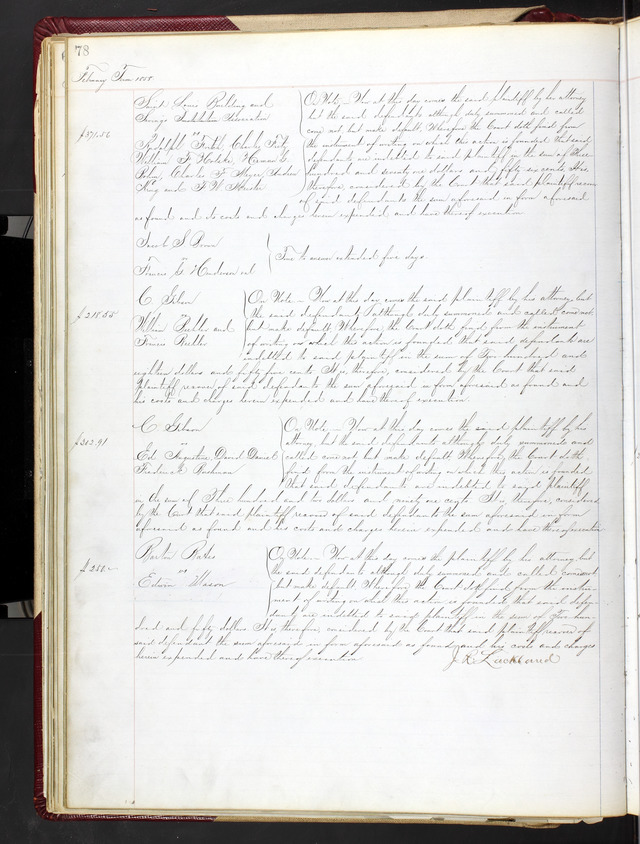 78
February Term 1858
Saint Louis Building and
Savings Institution
$371.56
vs
Rudolph Charles
William F. Herman G.
Charles F. Meyer
King and F. W.
On Note – Now at this day comes the said plaintiff by his attorney
but the said defendants although duly summoned and called
come not but make default. Wherefore the Court doth find from
the instrument of writing on which this action is founded that said
defendants are indebted to said plaintiff in the sum of Three
hundred and seventy one dollars and fifty six cents. It is,
therefore, considered by the Court that said plaintiff recover
of said defendants the sum aforesaid in form aforesaid
as found and its costs and charges herein expended and have thereof execution
Jacob S
vs
Francis G. Anderson et al
Time to answer extended five days.
$218.55
C Gibson
vs
William and
Francis
On Note – Now at this day comes the said plaintiff by his attorney, but
the said defendants although duly summoned and called come not
but make default. Wherefore, the Court doth find from the instrument
of writing on which this action is founded that said defendants are
indebted to said plaintiff in the sum of Two hundred and
eighteen dollars and fifty five cents. It is, therefore, considered by the Court that said
Plaintiff recover of said defendants the sum aforesaid in form aforesaid as found and
his costs and charges herein expended and have thereof execution.
$302.91
C Gibson
vs
Ed. Augustine, David Daniel
Frederick
On Note – Now at this day comes the said plaintiff by his
attorney, but the said defendants although duly summoned and
called come not but make default. Wherefore, the Court doth
find from the instrument of writing on which this action is founded
that said defendants are indebted to said Plaintiff
in the sum of Three hundred and two dollars and ninety one cents. It is, therefore, considered
by the Court that said plaintiff recover of said defendants the sum aforesaid in form
aforesaid as found and his costs and charges herein expended and have thereof execution
$250.–
Barton Bates
vs
Edwin
On Note – Now at this day comes the plaintiff by his attorney but
the said defendant although duly summoned and called comes not
but make default. Wherefore, the Court doth find from the instru-
ment of writing on which this action is founded that said defen-
dant are indebted to said plaintiff in the sum of Two hun-
dred and fifty dollars. It is, therefore, considered by the Court that said plaintiff recover of
said defendant the sum aforesaid in form aforesaid as found and his costs and charges
herein expended and have thereof execution